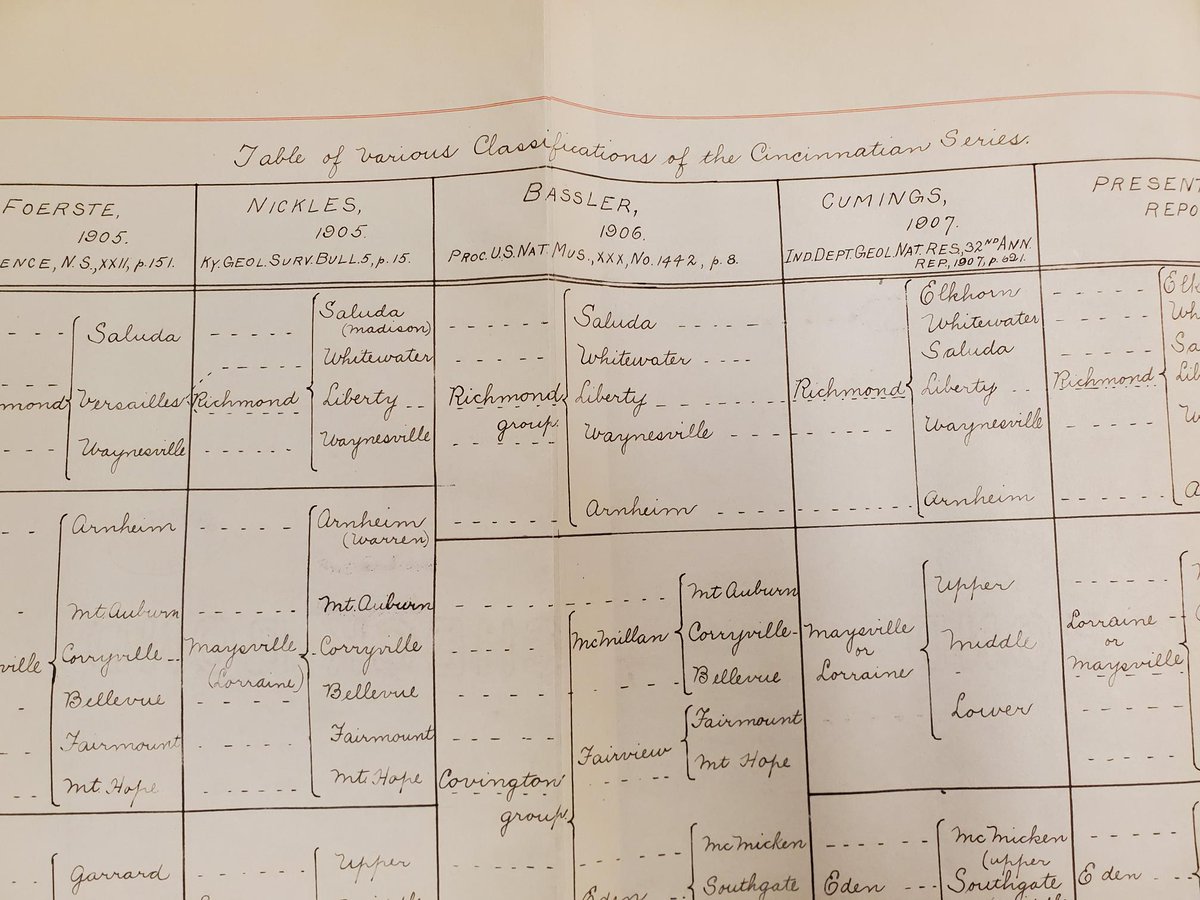 Table of Various Classifications of the Cincinnatian Series.
FOERSTE,
1905.
ENCE, N.S., XXII, p. 151.
Saluda
mond
Versailles
Waynesville
Arnheim
Mt. Auburn
ville
Corryville
Bellevue
Fairmount
Mt. Hope
Garrard
NICKLES,
1905.
KY. GEOL. SURV. BULL. 5, p. 15.
Saluda
(Madison)
Whitewater
Richmond
Liberty
Waynesville
Arnheim
(Warren)
Mt. Auburn
Maysville
(Lorraine)
Corryville
Bellevue
Fairmount
Mt. Hope
Upper
BASSLER,
1906.
PROC. U.S. NAT. MUS., XXX, No. 1442, p. 8.
Saluda
Whitewater
Richmond
group
Liberty
Waynesville
Arnheim
Mt Auburn
McMillan
Corryville
Bellevue
Fairmount
Fairview
Mt Hope
Covington
group
McMicken
Eden
Southgate
CUMINGS,
1907.
IND. DEPT. GEOL. NAT. RES., 32ND ANN.
REP., 1907, p. 621.
Elkhorn
Whitewater
Saluda
Richmond
Liberty
Waynesville
Arnheim
Upper
Maysville
or
Lorraine
Middle
Lower
McMicken
(upper
Eden
Southgate
PRESENT
REPO
Elk
Wh
Sa
Richmond
Lib
W
A
Lorraine
or
Maysville
Eden